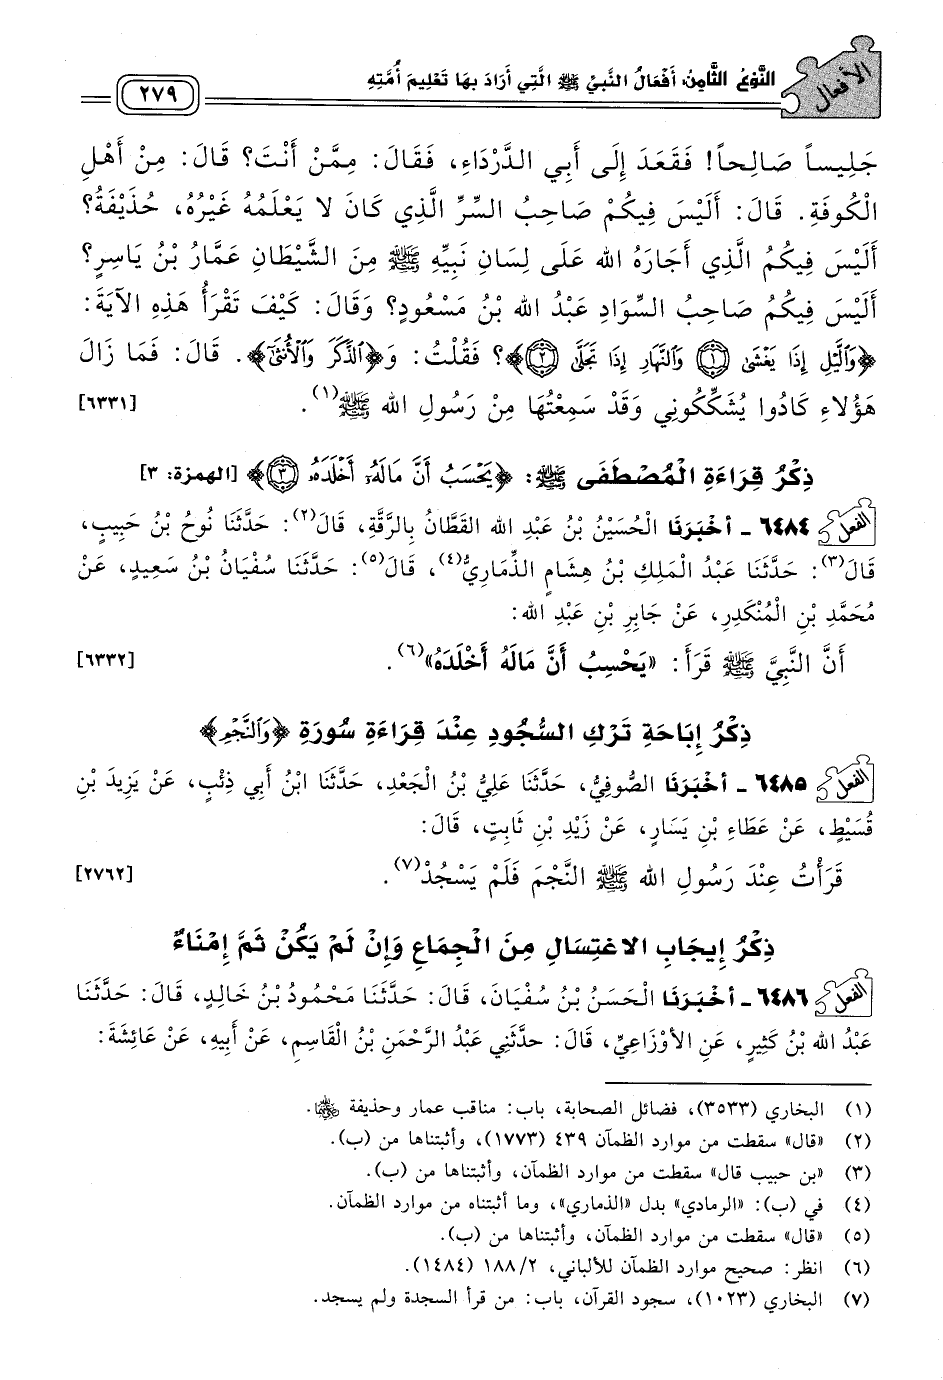 الأفعال
النَّوْعُ الثَّامِنُ: أَفْعَالُ النَّبِيِّ ﷺ الَّتِي أَرَادَ بِهَا تَعْلِيمَ أُمَّتِهِ
٢٧٩
جَلِيساً صَالِحاً! فَقَعَدَ إِلَى أَبِي الدَّرْدَاءِ، فَقَالَ: مِمَّنْ أَنْتَ؟ قَالَ: مِنْ أَهْلِ
الْكُوفَةِ. قَالَ: أَلَيْسَ فِيكُمْ صَاحِبُ السِّرِّ الَّذِي كَانَ لا يَعْلَمُهُ غَيْرُهُ، حُذَيْفَةُ؟
أَلَيْسَ فِيكُمُ الَّذِي أَجَارَهُ الله عَلَى لِسَانِ نَبِيِّهِ ﷺ مِنَ الشَّيْطَانِ عَمَّارُ بْنُ يَاسِرٍ؟
أَلَيْسَ فِيكُمْ صَاحِبُ السِّوَادِ عَبْدُ الله بْنُ مَسْعُودٍ؟ وَقَالَ: كَيْفَ تَقْرَأُ هَذِهِ الآيَةَ:
﴿وَٱلَّيْلِ إِذَا يَغْشَىٰ ١ وَٱلنَّهَارِ إِذَا تَجَلَّىٰ ٢﴾؟ فَقُلْتُ: وَ﴿ٱلذَّكَرَ وَٱلْأُنثَىٰ﴾. قَالَ: فَمَا زَالَ
هَؤُلاءِ كَادُوا يُشَكِّكُونِي وَقَدْ سَمِعْتُهَا مِنْ رَسُولِ الله ﷺ(١). [٦٣٣١]
ذِكْرُ قِرَاءَةِ الْمُصْطَفَى ﷺ: ﴿يَحْسَبُ أَنَّ مَالَهُۥٓ أَخْلَدَهُۥ ٣﴾ [الهمزة: ٣]
الفعل ٦٤٨٤ - أَخْبَرَنَا الْحُسَيْنُ بْنُ عَبْدِ الله القَطَّانُ بِالرَّقَّةِ، قَالَ(٢): حَدَّثَنَا نُوحُ بْنُ حَبِيبٍ،
قَالَ(٣): حَدَّثَنَا عَبْدُ الْمَلِكِ بْنُ هِشَامٍ الذِّمَارِيُّ(٤)، قَالَ(٥): حَدَّثَنَا سُفْيَانُ بْنُ سَعِيدٍ، عَنْ
مُحَمَّدِ بْنِ الْمُنْكَدِرِ، عَنْ جَابِرِ بْنِ عَبْدِ الله:
أَنَّ النَّبِيَّ ﷺ قَرَأَ: «يَحْسِبُ أَنَّ مَالَهُ أَخْلَدَهُ»(٦). [٦٣٣٢]
ذِكْرُ إِبَاحَةِ تَرْكِ السُّجُودِ عِنْدَ قِرَاءَةِ سُورَةِ ﴿وَٱلنَّجْمِ﴾
الفعل ٦٤٨٥ - أَخْبَرَنَا الصُّوفِيُّ، حَدَّثَنَا عَلِيُّ بْنُ الْجَعْدِ، حَدَّثَنَا ابْنُ أَبِي ذِئْبٍ، عَنْ يَزِيدَ بْنِ
قُسَيْطٍ، عَنْ عَطَاءِ بْنِ يَسَارٍ، عَنْ زَيْدِ بْنِ ثَابِتٍ، قَالَ:
قَرَأْتُ عِنْدَ رَسُولِ الله ﷺ النَّجْمَ فَلَمْ يَسْجُدْ(٧). [٢٧٦٢]
ذِكْرُ إِيجَابِ الاغْتِسَالِ مِنَ الْجِمَاعِ وَإِنْ لَمْ يَكُنْ ثَمَّ إِمْنَاءٌ
الفعل ٦٤٨٦ - أَخْبَرَنَا الْحَسَنُ بْنُ سُفْيَانَ، قَالَ: حَدَّثَنَا مَحْمُودُ بْنُ خَالِدٍ، قَالَ: حَدَّثَنَا
عَبْدُ الله بْنُ كَثِيرٍ، عَنِ الأَوْزَاعِيِّ، قَالَ: حدَّثَنِي عَبْدُ الرَّحْمَنِ بْنُ الْقَاسِمِ، عَنْ أَبِيهِ، عَنْ عَائِشَةَ:
(١) البخاري (٣٥٣٣)، فضائل الصحابة، باب: مناقب عمار وحذيفة ﵄.
(٢) «قال» سقطت من موارد الظمآن ٤٣٩ (١٧٧٣)، وأثبتناها من (ب).
(٣) «بن حبيب قال» سقطت من موارد الظمآن، وأثبتناها من (ب).
(٤) في (ب): «الرمادي» بدل «الذماري»، وما أثبتناه من موارد الظمآن.
(٥) «قال» سقطت من موارد الظمآن، وأثبتناها من (ب).
(٦) انظر: صحيح موارد الظمآن للألباني، ١٨٨/٢ (١٤٨٤).
(٧) البخاري (١٠٢٣)، سجود القرآن، باب: من قرأ السجدة ولم يسجد.